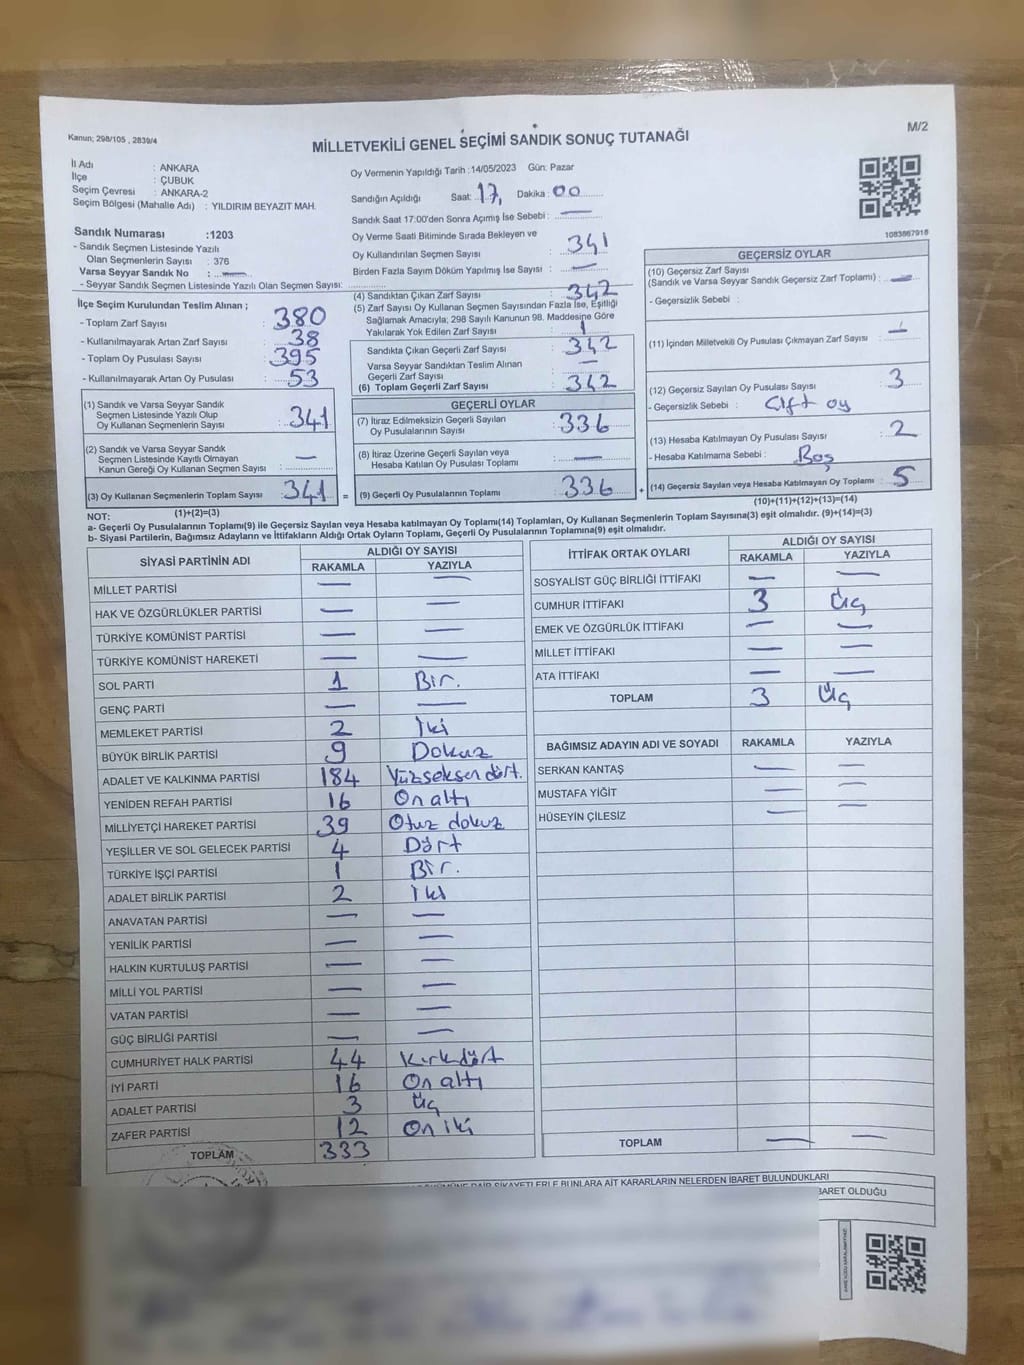 Kanun; 298/105 , 2839/4
M/2
MİLLETVEKİLİ GENEL SEÇİMİ SANDIK SONUÇ TUTANAĞI
İl Adı : ANKARA
İlçe : ÇUBUK
Seçim Çevresi : ANKARA-2
Seçim Bölgesi (Mahalle Adı) : YILDIRIM BEYAZIT MAH.
Sandık Numarası :1203
- Sandık Seçmen Listesinde Yazılı
Olan Seçmenlerin Sayısı : 376
Varsa Seyyar Sandık No : —
- Seyyar Sandık Seçmen Listesinde Yazılı Olan Seçmen Sayısı:
Oy Vermenin Yapıldığı Tarih :14/05/2023 Gün: Pazar
Sandığın Açıldığı Saat: 17, Dakika : 00
Sandık Saat 17:00'den Sonra Açımış İse Sebebi : —
Oy Verme Saati Bitiminde Sırada Bekleyen ve
Oy Kullandırılan Seçmen Sayısı : 341
Birden Fazla Sayım Döküm Yapılmış İse Sayısı : —
1083867918
İlçe Seçim Kurulundan Teslim Alınan ;
- Toplam Zarf Sayısı : 380
- Kullanılmayarak Artan Zarf Sayısı : 38
- Toplam Oy Pusulası Sayısı : 395
- Kullanılmayarak Artan Oy Pusulası : 53
(1) Sandık ve Varsa Seyyar Sandık
Seçmen Listesinde Yazılı Olup
Oy Kullanan Seçmenlerin Sayısı : 341
(2) Sandık ve Varsa Seyyar Sandık
Seçmen Listesinde Kayıtlı Olmayan
Kanun Gereği Oy Kullanan Seçmen Sayısı : —
(3) Oy Kullanan Seçmenlerin Toplam Sayısı : 341 =
(1)+(2)=(3)
(4) Sandıktan Çıkan Zarf Sayısı : 342
(5) Zarf Sayısı Oy Kullanan Seçmen Sayısından Fazla İse, Eşitliği
Sağlamak Amacıyla; 298 Sayılı Kanunun 98. Maddesine Göre
Yakılarak Yok Edilen Zarf Sayısı : 1
Sandıkta Çıkan Geçerli Zarf Sayısı : 342
Varsa Seyyar Sandıktan Teslim Alınan
Geçerli Zarf Sayısı : —
(6) Toplam Geçerli Zarf Sayısı : 342
GEÇERLİ OYLAR
(7) İtiraz Edilmeksizin Geçerli Sayılan
Oy Pusulalarının Sayısı : 336
(8) İtiraz Üzerine Geçerli Sayılan veya
Hesaba Katılan Oy Pusulası Toplamı : —
(9) Geçerli Oy Pusulalarının Toplamı : 336 +
GEÇERSİZ OYLAR
(10) Geçersiz Zarf Sayısı
(Sandık ve Varsa Seyyar Sandık Geçersiz Zarf Toplamı) : —
- Geçersizlik Sebebi :
(11) İçinden Milletvekili Oy Pusulası Çıkmayan Zarf Sayısı : —
(12) Geçersiz Sayılan Oy Pusulası Sayısı : 3
- Geçersizlik Sebebi : Çift oy
(13) Hesaba Katılmayan Oy Pusulası Sayısı : 2
- Hesaba Katılmama Sebebi : Boş
(14) Geçersiz Sayılan veya Hesaba Katılmayan Oy Toplamı : 5
(10)+(11)+(12)+(13)=(14)
NOT:
a- Geçerli Oy Pusulalarının Toplamı(9) ile Geçersiz Sayılan veya Hesaba katılmayan Oy Toplamı(14) Toplamları, Oy Kullanan Seçmenlerin Toplam Sayısına(3) eşit olmalıdır. (9)+(14)=(3)
b- Siyasi Partilerin, Bağımsız Adayların ve İttifakların Aldığı Ortak Oyların Toplamı, Geçerli Oy Pusulalarının Toplamına(9) eşit olmalıdır.
SİYASİ PARTİNİN ADI ALDIĞI OY SAYISI
RAKAMLA YAZIYLA
MİLLET PARTİSİ — —
HAK VE ÖZGÜRLÜKLER PARTİSİ — —
TÜRKİYE KOMÜNİST PARTİSİ — —
TÜRKİYE KOMÜNİST HAREKETİ — —
SOL PARTİ 1 Bir.
GENÇ PARTİ — —
MEMLEKET PARTİSİ 2 İki
BÜYÜK BİRLİK PARTİSİ 9 Dokuz
ADALET VE KALKINMA PARTİSİ 184 Yüzseksen dört.
YENİDEN REFAH PARTİSİ 16 On altı
MİLLİYETÇİ HAREKET PARTİSİ 39 Otuz dokuz
YEŞİLLER VE SOL GELECEK PARTİSİ 4 Dört
TÜRKİYE İŞÇİ PARTİSİ 1 Bir.
ADALET BİRLİK PARTİSİ 2 İki
ANAVATAN PARTİSİ — —
YENİLİK PARTİSİ — —
HALKIN KURTULUŞ PARTİSİ — —
MİLLİ YOL PARTİSİ — —
VATAN PARTİSİ — —
GÜÇ BİRLİĞİ PARTİSİ — —
CUMHURİYET HALK PARTİSİ 44 Kırkdört
İYİ PARTİ 16 On altı
ADALET PARTİSİ 3 Üç
ZAFER PARTİSİ 12 On iki
TOPLAM 333
İTTİFAK ORTAK OYLARI ALDIĞI OY SAYISI
RAKAMLA YAZIYLA
SOSYALİST GÜÇ BİRLİĞİ İTTİFAKI — —
CUMHUR İTTİFAKI 3 Üç
EMEK VE ÖZGÜRLÜK İTTİFAKI — —
MİLLET İTTİFAKI — —
ATA İTTİFAKI — —
TOPLAM 3 Üç
BAĞIMSIZ ADAYIN ADI VE SOYADI RAKAMLA YAZIYLA
SERKAN KANTAŞ — —
MUSTAFA YİĞİT — —
HÜSEYİN ÇİLESİZ — —
TOPLAM — —
DAİR ŞİKAYETLERLE BUNLARA AİT KARARLARIN NELERDEN İBARET BULUNDUKLARI
OLDUĞU